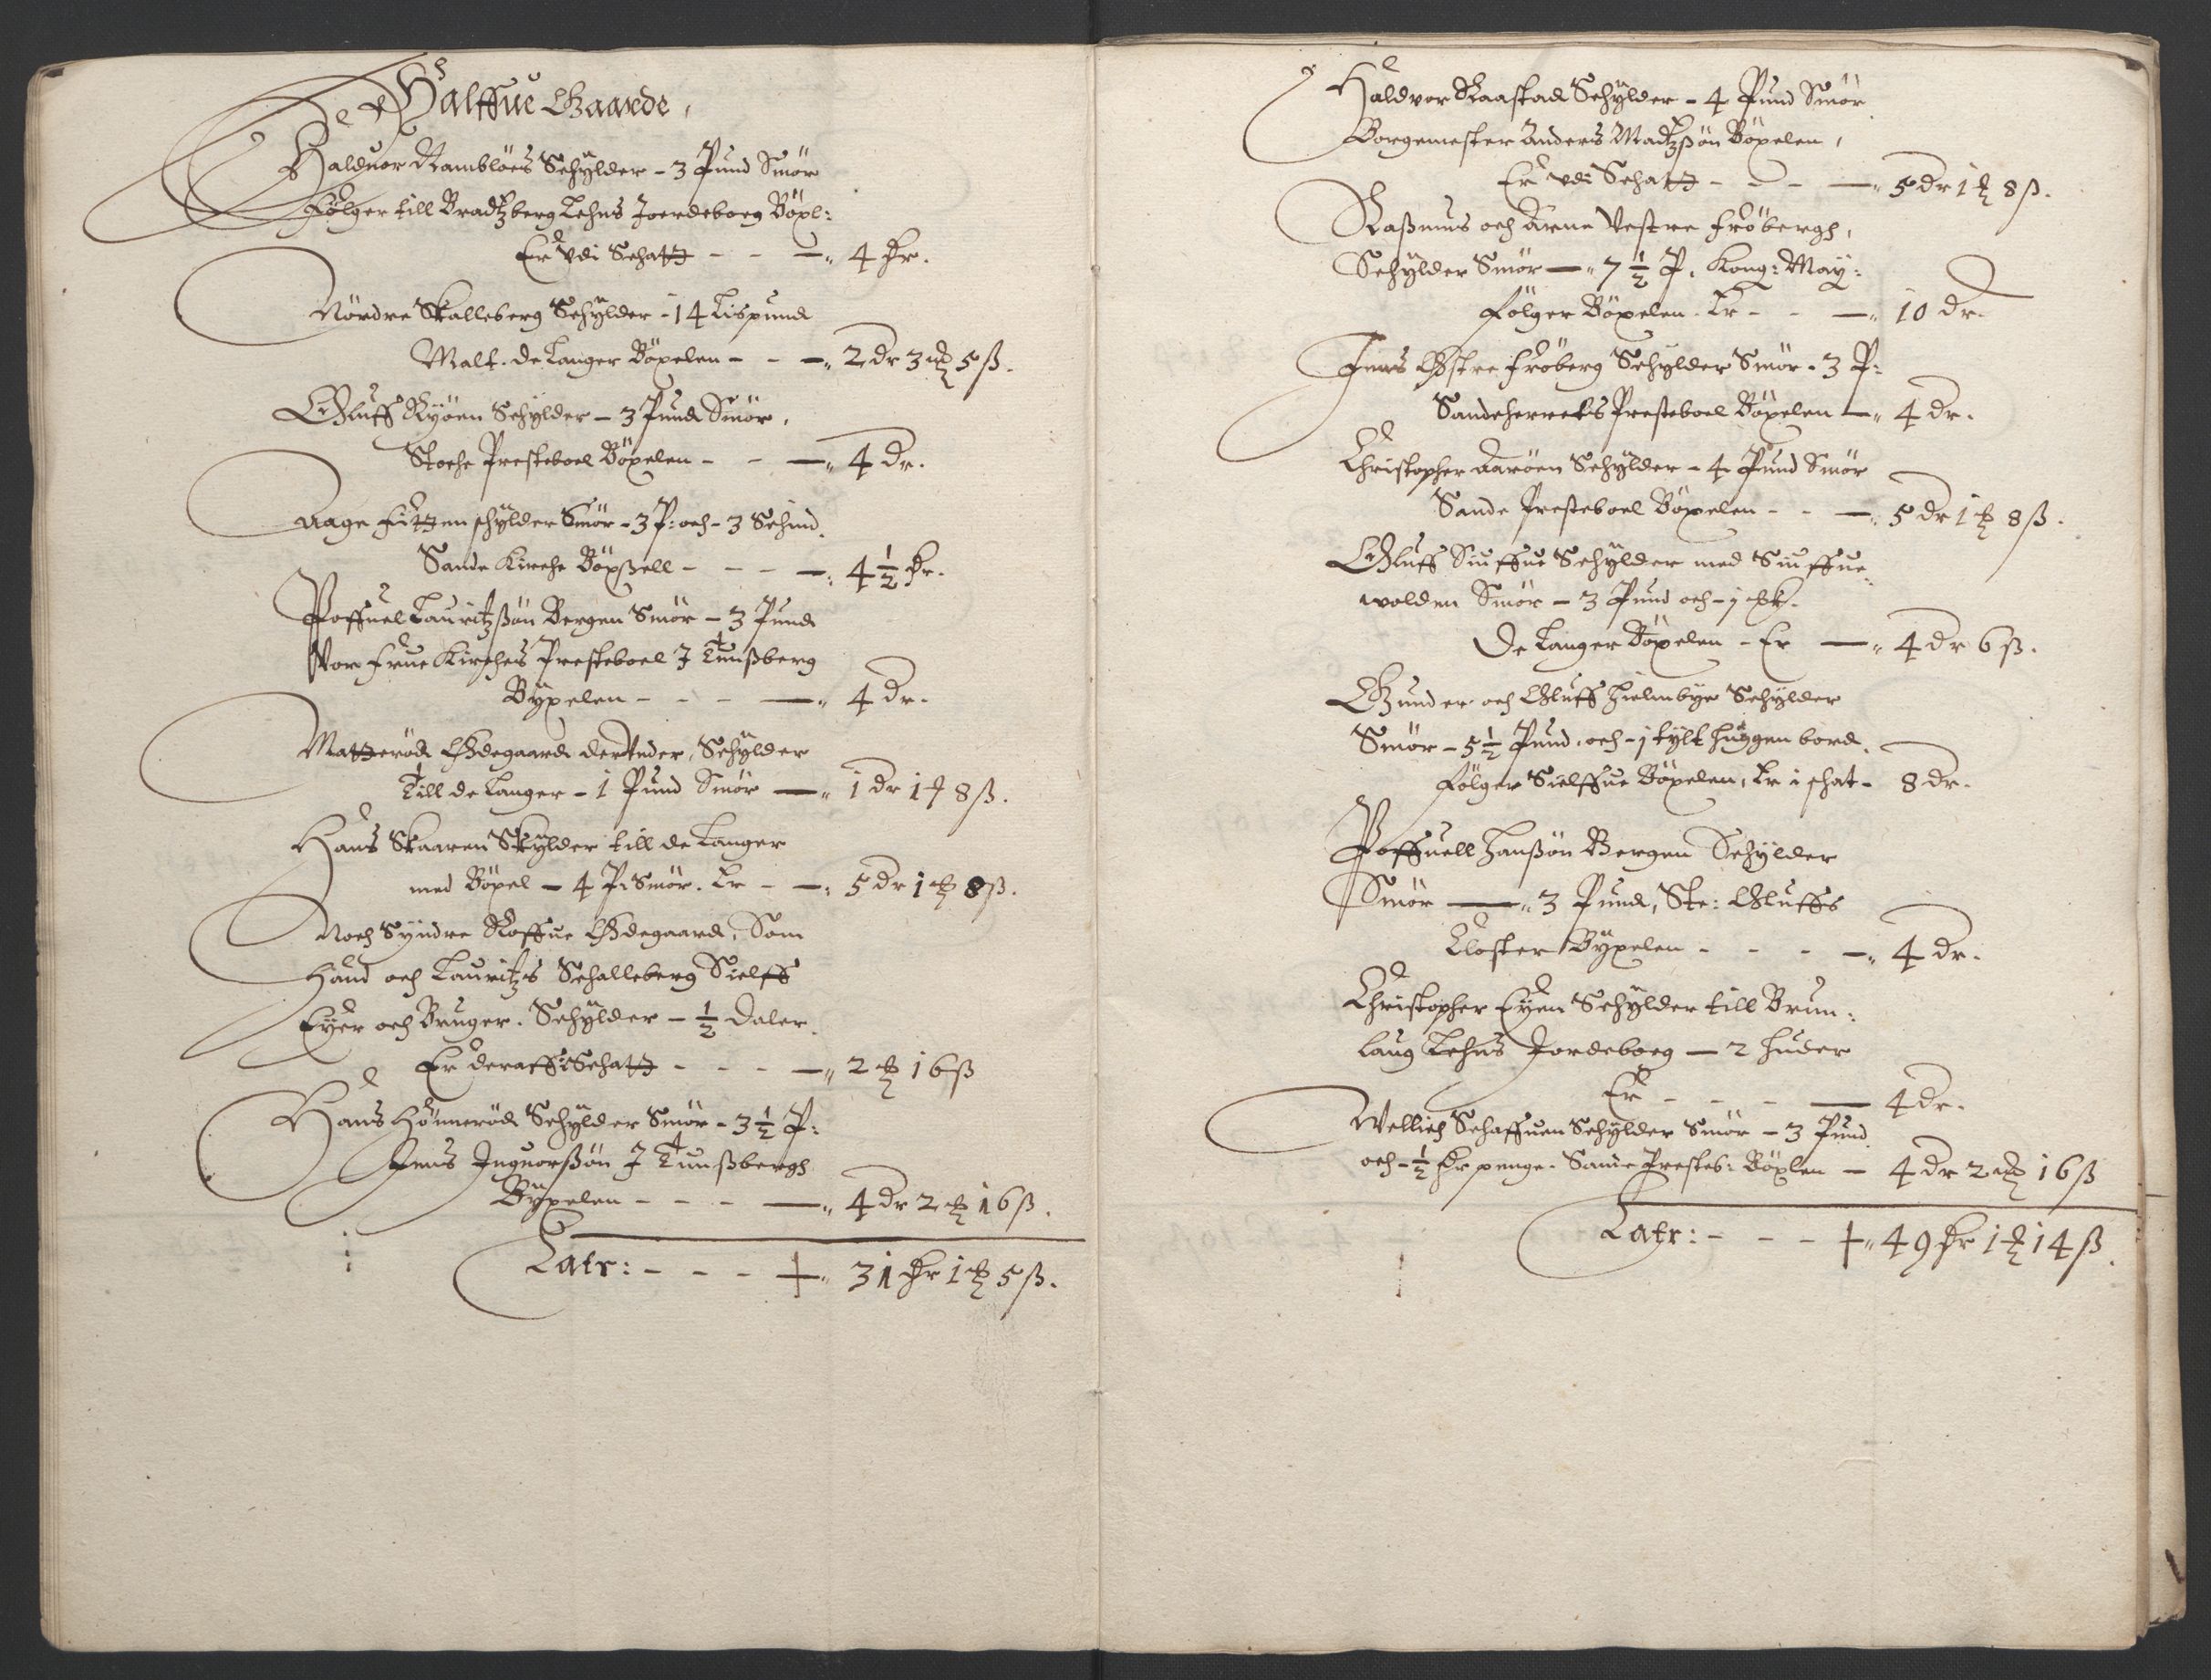 De Halffue Gaarde,
Halduor Ramblöes Schÿlder - 3 Pund Smör
Fölger till Bradtzberg Lehns Joerdeboeg Böxl:
Er Vdi Schatt - - - 4 dr.
Nördre Skalleberg Schÿlder - 14 Lispund
Malt. de Langer Böxelen - - - 2 dr 3 ort 5 ß.
Oluff Ryöen Schÿlder - 3 Pund Smör,
Stoche Presteboel Böxelen - - - 4 dr.
Aage Fitten schÿlder Smör - 3 P: och - 3 Schind.
Sande Kirche Böxsell - - - 4 ½ dr.
Poffuel Lauritzßön Bergen Smör - 3 Pund
Vor Frue Kirches Presteboel J Tunßberg
Bÿxelen - - - 4 dr.
Matteröd Ödegaard der Vnder, Schÿlder
Till de Langer - 1 Pund Smör - 1 dr 1 ort 8 ß.
Hans Skaaren Skÿlder till de Langer
med Böxel - 4 P: Smör. Er - - 5 dr 1 ort 8 ß.
Noch Syndre Roffue Ödegaard, Som
Hand och Lauritz Schalleberg Sielff
Eÿer och Bruger. Schÿlder - ½ daler.
Er deraff i Schatt - - - 2 ort 16 ß
Hans Hönneröd Schÿlder Smör - 3 ½ P:
Jens Inguorßön J Tunßbergh
Bÿxelen - - - 4 dr 2 ort 16 ß.
Latr: - - - 31 dr 1 ort 5 ß.
Haldvor Raastad Schÿlder - 4 Pund Smör
Borgemester Anders Madtzßön Böxelen,
Er vdi Schatt - - - 5 dr 1 ort 8 ß.
Raßmus och Arne Vestre Fröbergh,
Schÿlder Smör - 7 ½ P. Kong: May:
Fölger Böxelen. Er - - - 10 dr.
Jens Östre Fröberg Schÿlder Smör - 3 P:
Sandeherrets Presteboel Böxelen - 4 dr.
Christopher Aaröen Schÿlder - 4 Pund Smör
Sande Presteboel Böxelen - - - 5 dr 1 ort 8 ß.
Oluff Siuffue Schÿlder med Siuffue
wolden Smör - 3 Pund och - j
De Langer Böxelen - Er - 4 dr 6 ß.
Gunder och Oluff Hielmbye Schÿlder
Smör - 5 ½ Pund, och - j tylt huggen bord.
Fölger Sielffue Böxelen, Er i schat - 8 dr.
Poffuell Hanßön Bergen Schÿlder
Smör - 3 Pund, Ste: Oluffs
Closter Bÿxelen - - - 4 dr.
Christopher Eÿen Schÿlder till Brun:
laug Lehns Jordeboeg - 2 huder
Er - - - 4 dr.
Wellich Schaffuen Schÿlder Smör - 3 Pund
och - ½ dr penge. Sande Presteb: Böxlen - 4 dr 2 ort 16 ß
Latr: - - - 49 dr 1 ort 14 ß.